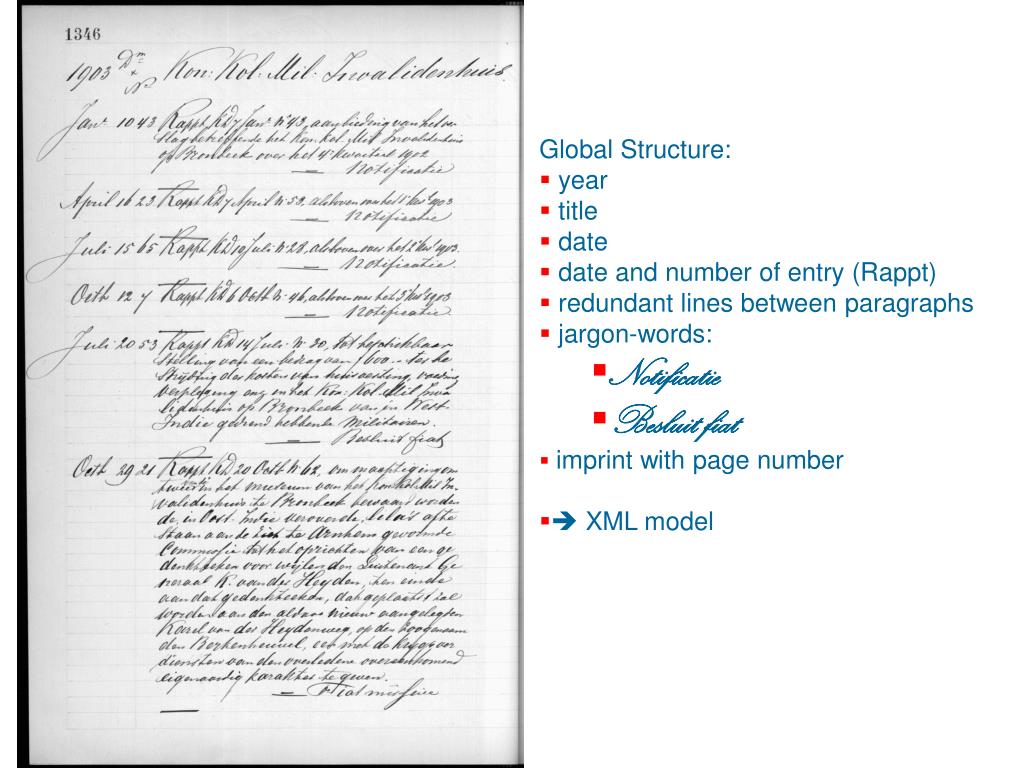 1346
1903 Dm & No Kon: Kol: Mil: Invalidenhuis.
Janr 10 43 Rappt KD 7 Janr No 43, aanbieding van het ver
slag betreffende het Kon: Kol. Mil Invalidenhuis
op Bronbeek over het 4e kwartaal 1902
— Notificatie
April 16 23 Rappt KD 7 April No 53, als boven over het 1e kwl 1903
— Notificatie
Juli 15 65 Rappt KD 10 Juli No 28, als boven over het 2e kwl 1903.
— Notificatie.
Octb 12 7 Rappt KD 6 Octb No 46, als boven over het 3e kwl 1903
— Notificatie
Juli 20 53 Rappt KD 14 Juli No 30, tot beschikbaar
stelling van een bedrag van f 600.- ter be
strijding der kosten van huisvesting, voeding
verpleging enz in het Kon: Kol. Mil Inva
lidenhuis op Bronbeek van in West-
Indie gediend hebbende militairen.
— Besluit fiat
Octb 29 21 Rappt KD 20 Octb No 62, om magtiging om
twee in het museum van het Kon Kol. Mil In
validenhuis te Bronbeek bewaard worden
de, in Oost-Indie veroverde, lila's af te
staan aan de te Arnhem gevormde
Commissie tot het oprichten van een ge
denkteeken voor wijlen den Luitenant Ge
neraal K. van der Heyden, ten einde
aan dat gedenkteeken, dat geplaatst zal
worden aan den aldaar nieuw aangelegden
Karel van der Heydenweg, op den zoogenaam
den Berkenheuvel, een met de krijgsver
diensten van den overledene overeenkomend
eigenaardig karakter te geven.
— Fiat missive
Global Structure:
▪ year
▪ title
▪ date
▪ date and number of entry (Rappt)
▪ redundant lines between paragraphs
▪ jargon-words:
▪ Notificatie
▪ Besluit fiat
▪ imprint with page number
▪➔ XML model